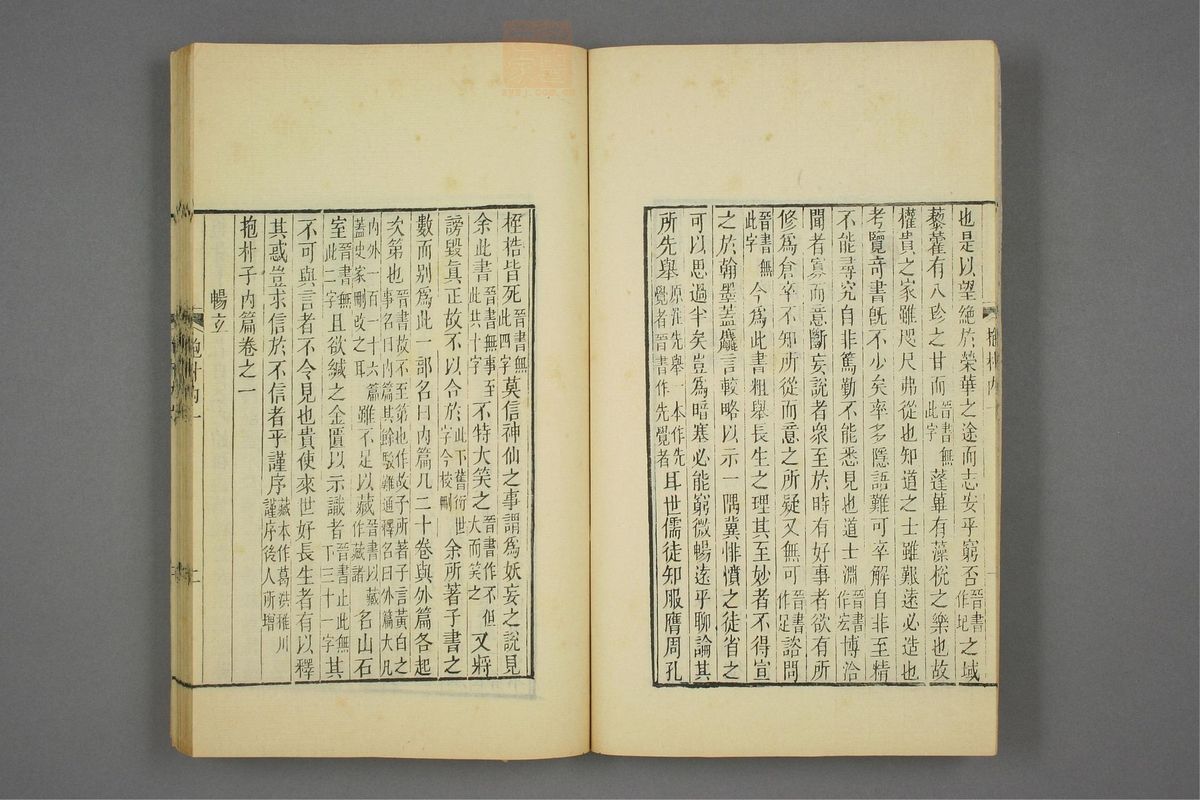 也是以望絶於榮華之途而志安乎窮否晉書作圯之域
藜藿有八珍之甘而晉書無此字蓬蓽有藻梲之樂也故
權貴之家雖咫尺弗從也知道之士雖艱遠必造也
考覽奇書旣不少矣率多隱語難可卒解自非至精
不能尋究自非篤勤不能悉見也道士淵晉書作宏博洽
聞者寡而意斷妄說者衆至於時有好事者欲有所
修爲倉卒不知所從而意之所疑又無可晉書作足諮問
晉書無此字今爲此書粗舉長生之理其至妙者不得宣
之於翰墨蓋麤言較略以示一隅冀悱憤之徒省之
可以思過半矣豈爲暗塞必能窮微暢遠乎聊論其
所先舉原注先舉一本作先覺者晉書作先覺者耳世儒徒知服膺周孔
抱朴內一
桎梏皆死晉書無此四字莫信神仙之事謂爲妖妄之說見
余此書晉書無事至此共十字不特大笑之晉書作不但大而笑之又將
謗毀眞正故不以合於此下舊衍世字今校刪余所著子書之
數而別爲此一部名曰內篇凡二十卷與外篇各起
次第也晉書故不至第也作故子所著子言黃白之事名曰內篇其餘駮難通釋名曰外篇大凡
內外一百一十六篇蓋史家刪改之耳雖不足以藏晉書以藏作藏諸名山石
室晉書無此二字且欲緘之金匱以示識者晉書止此無下三十一字其
不可與言者不令見也貴使來世好長生者有以釋
其惑豈求信於不信者乎謹序藏本作葛洪稚川謹序後人所增
抱朴子內篇卷之一
暢玄
抱朴內一
二